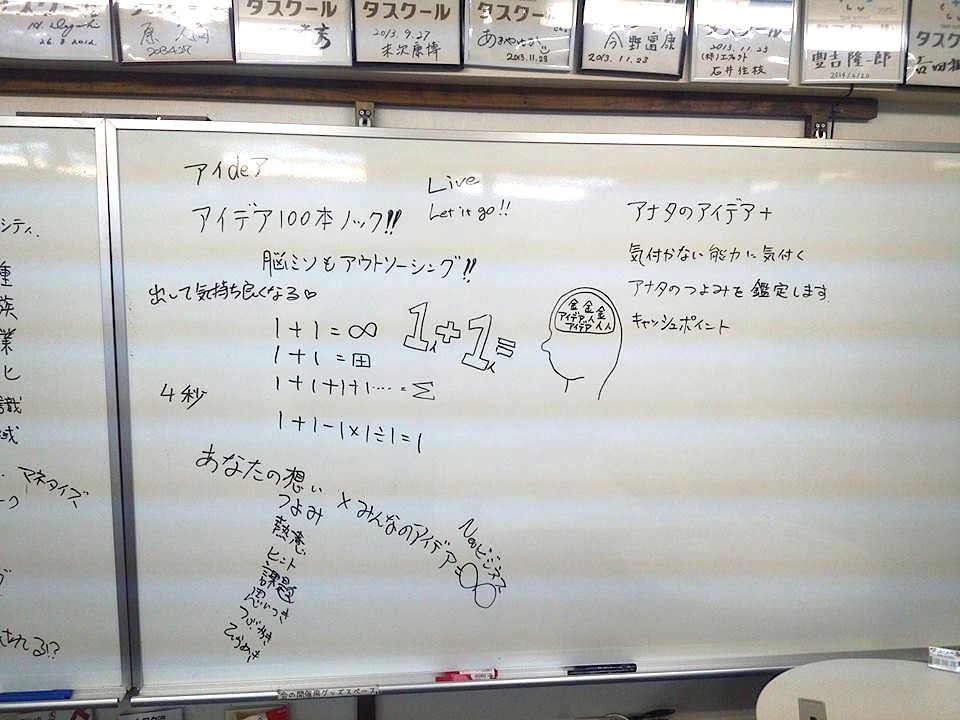 タスクール
タスクール
タスクール
タスクール
タスク
26.8.2014
2013.9.27
末次康博
2013.11.23
今野富康
2013.11.23
2013.11.23
石井佳枝
豊吉隆一郎
アイdeア
Live
Let it go!!
アイデア100本ノック!!
脳ミソもアウトソーシング!!
出して気持ち良くなる♡
1+1=∞
1+1=田
1+1+1+1.....=Σ
4秒
1+1-1×1÷1=1
1人+1人=
金 金 金
アイデア 人
アイデア 人 人
アナタのアイデア+
気付かない能力に気付く
アナタのつよみを鑑定します
キャッシュポイント
あなたの想い×みんなのアイデア=∞
つよみ
熱意
ヒント
課題
思いつき
つぶやき
ひらめき
シティ.
種
族
業
ヒ
識
域
マネタイズ
ーク
れる!?
会の開催用グッズスペース